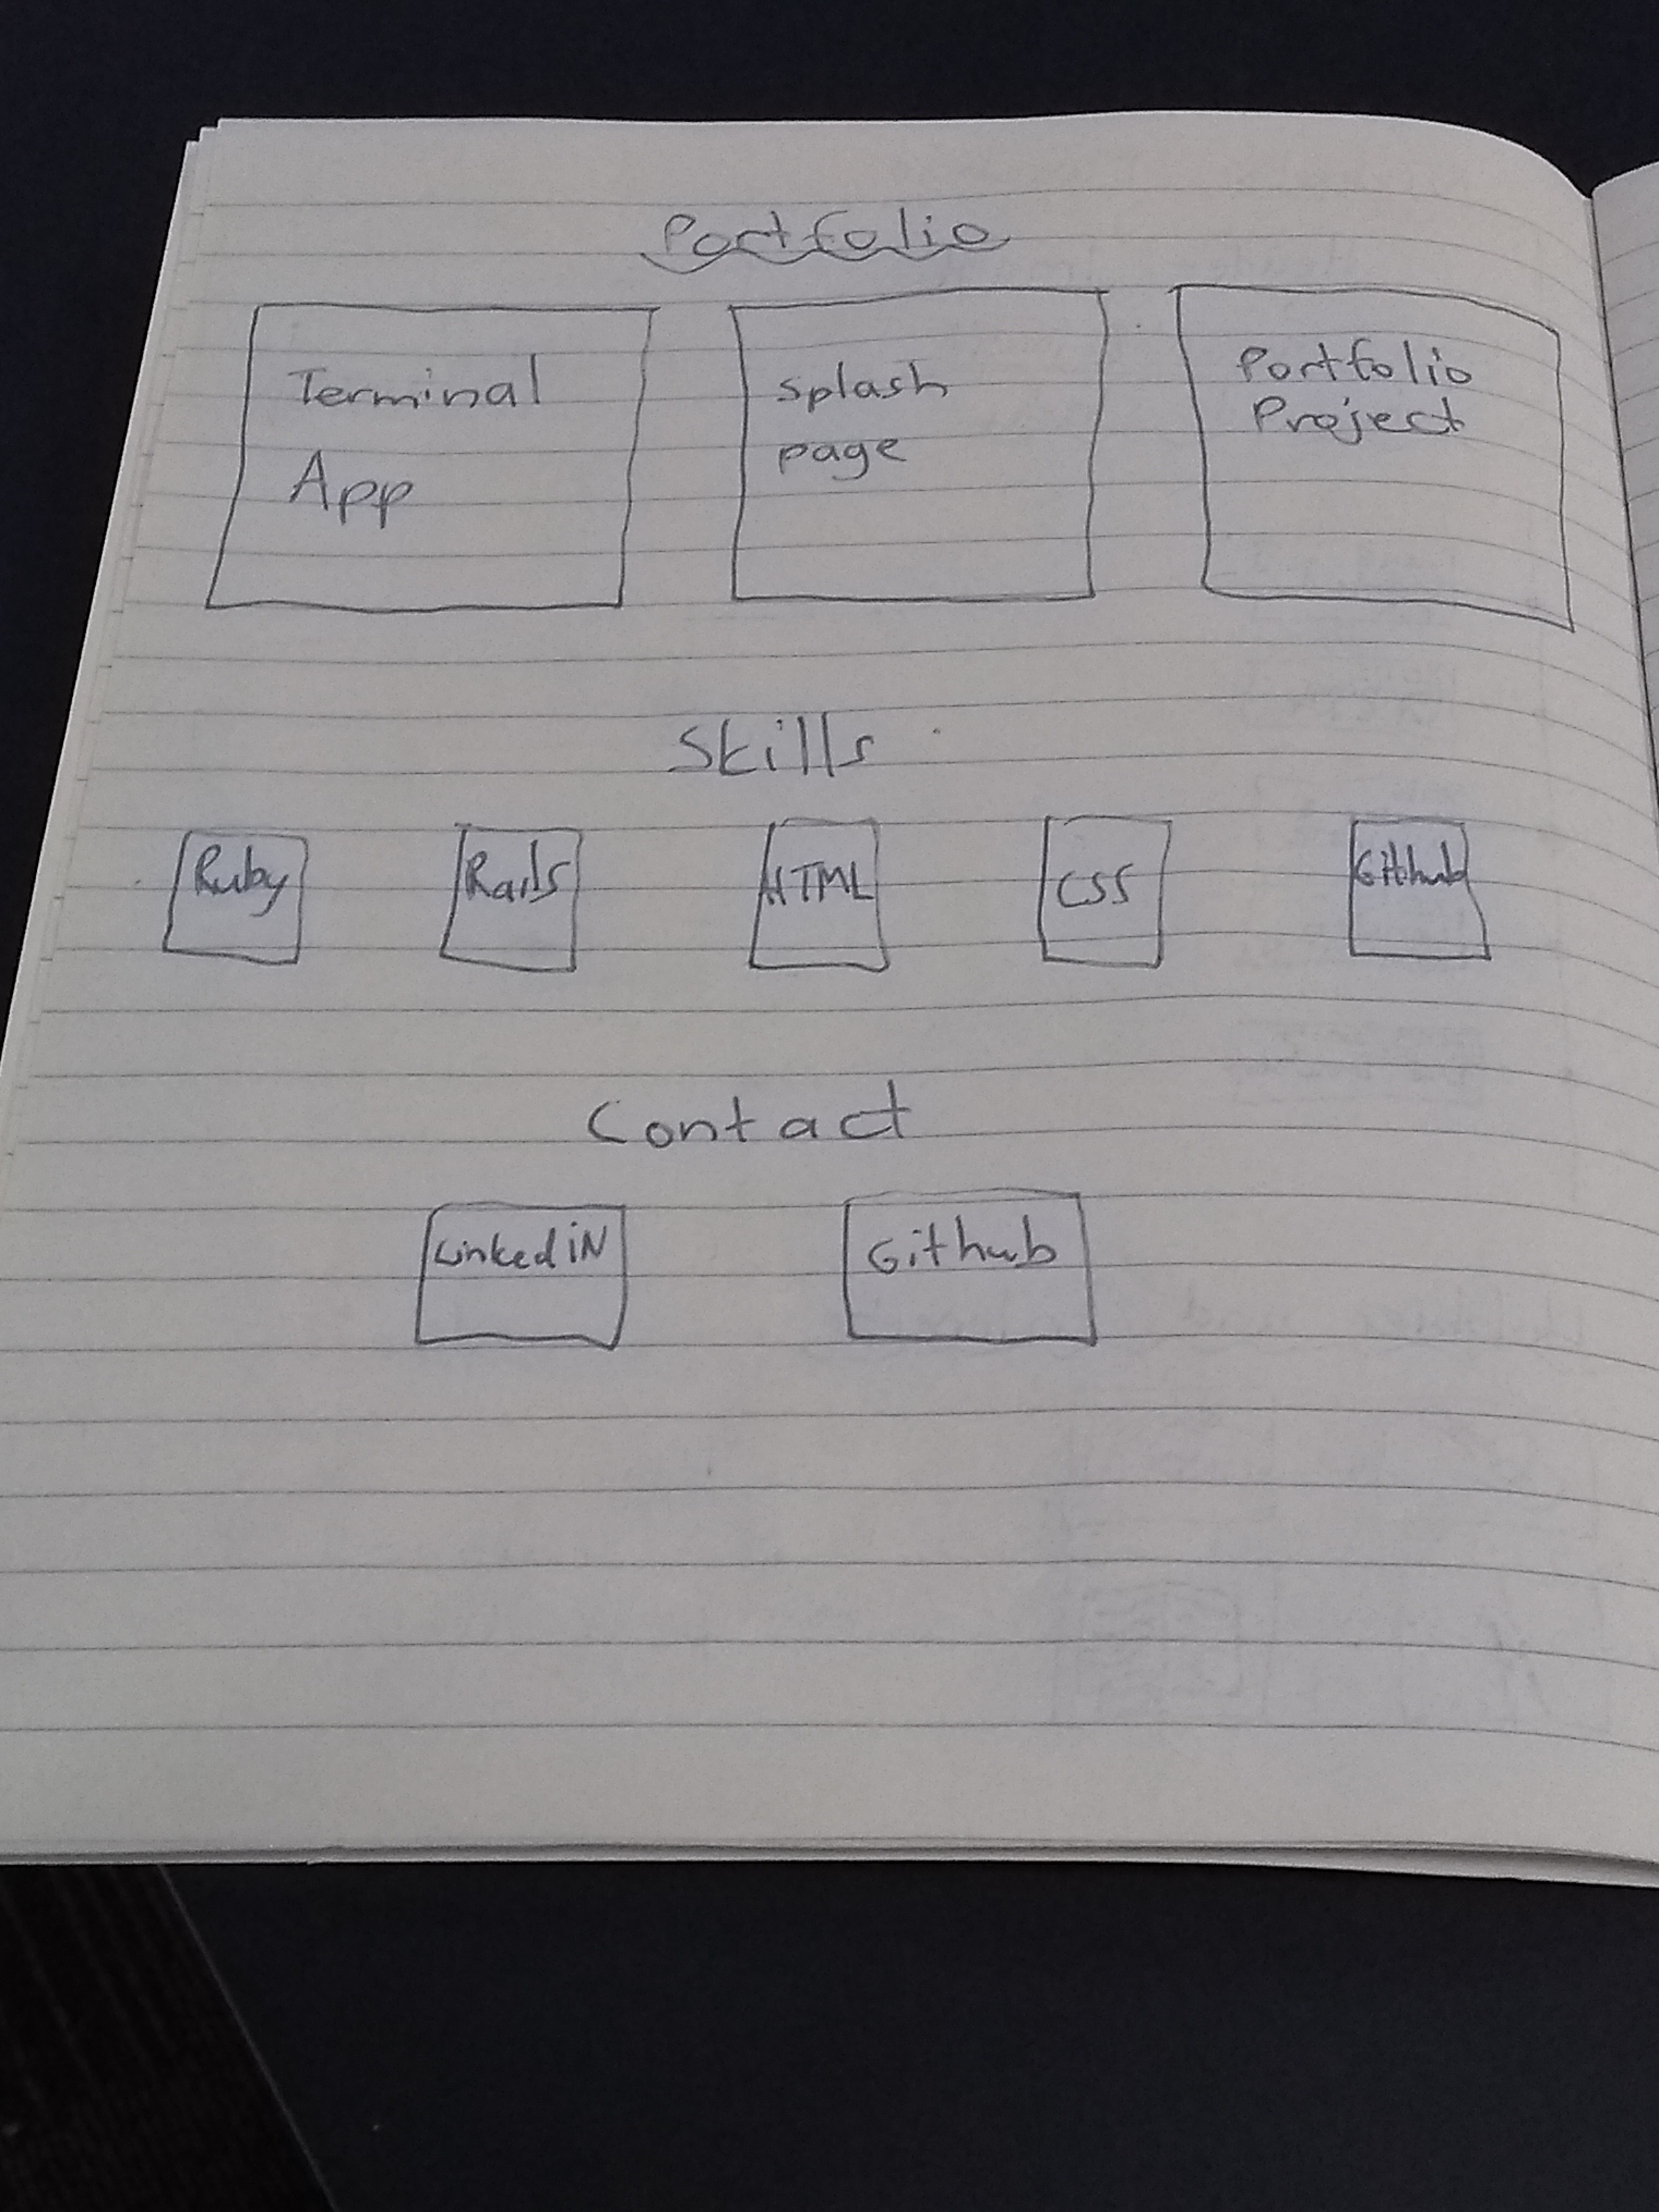 Portfolio
Terminal
App
splash
page
Portfolio
Project
Skills
Ruby
Rails
HTML
CSS
Github
Contact
Linked iN
Github